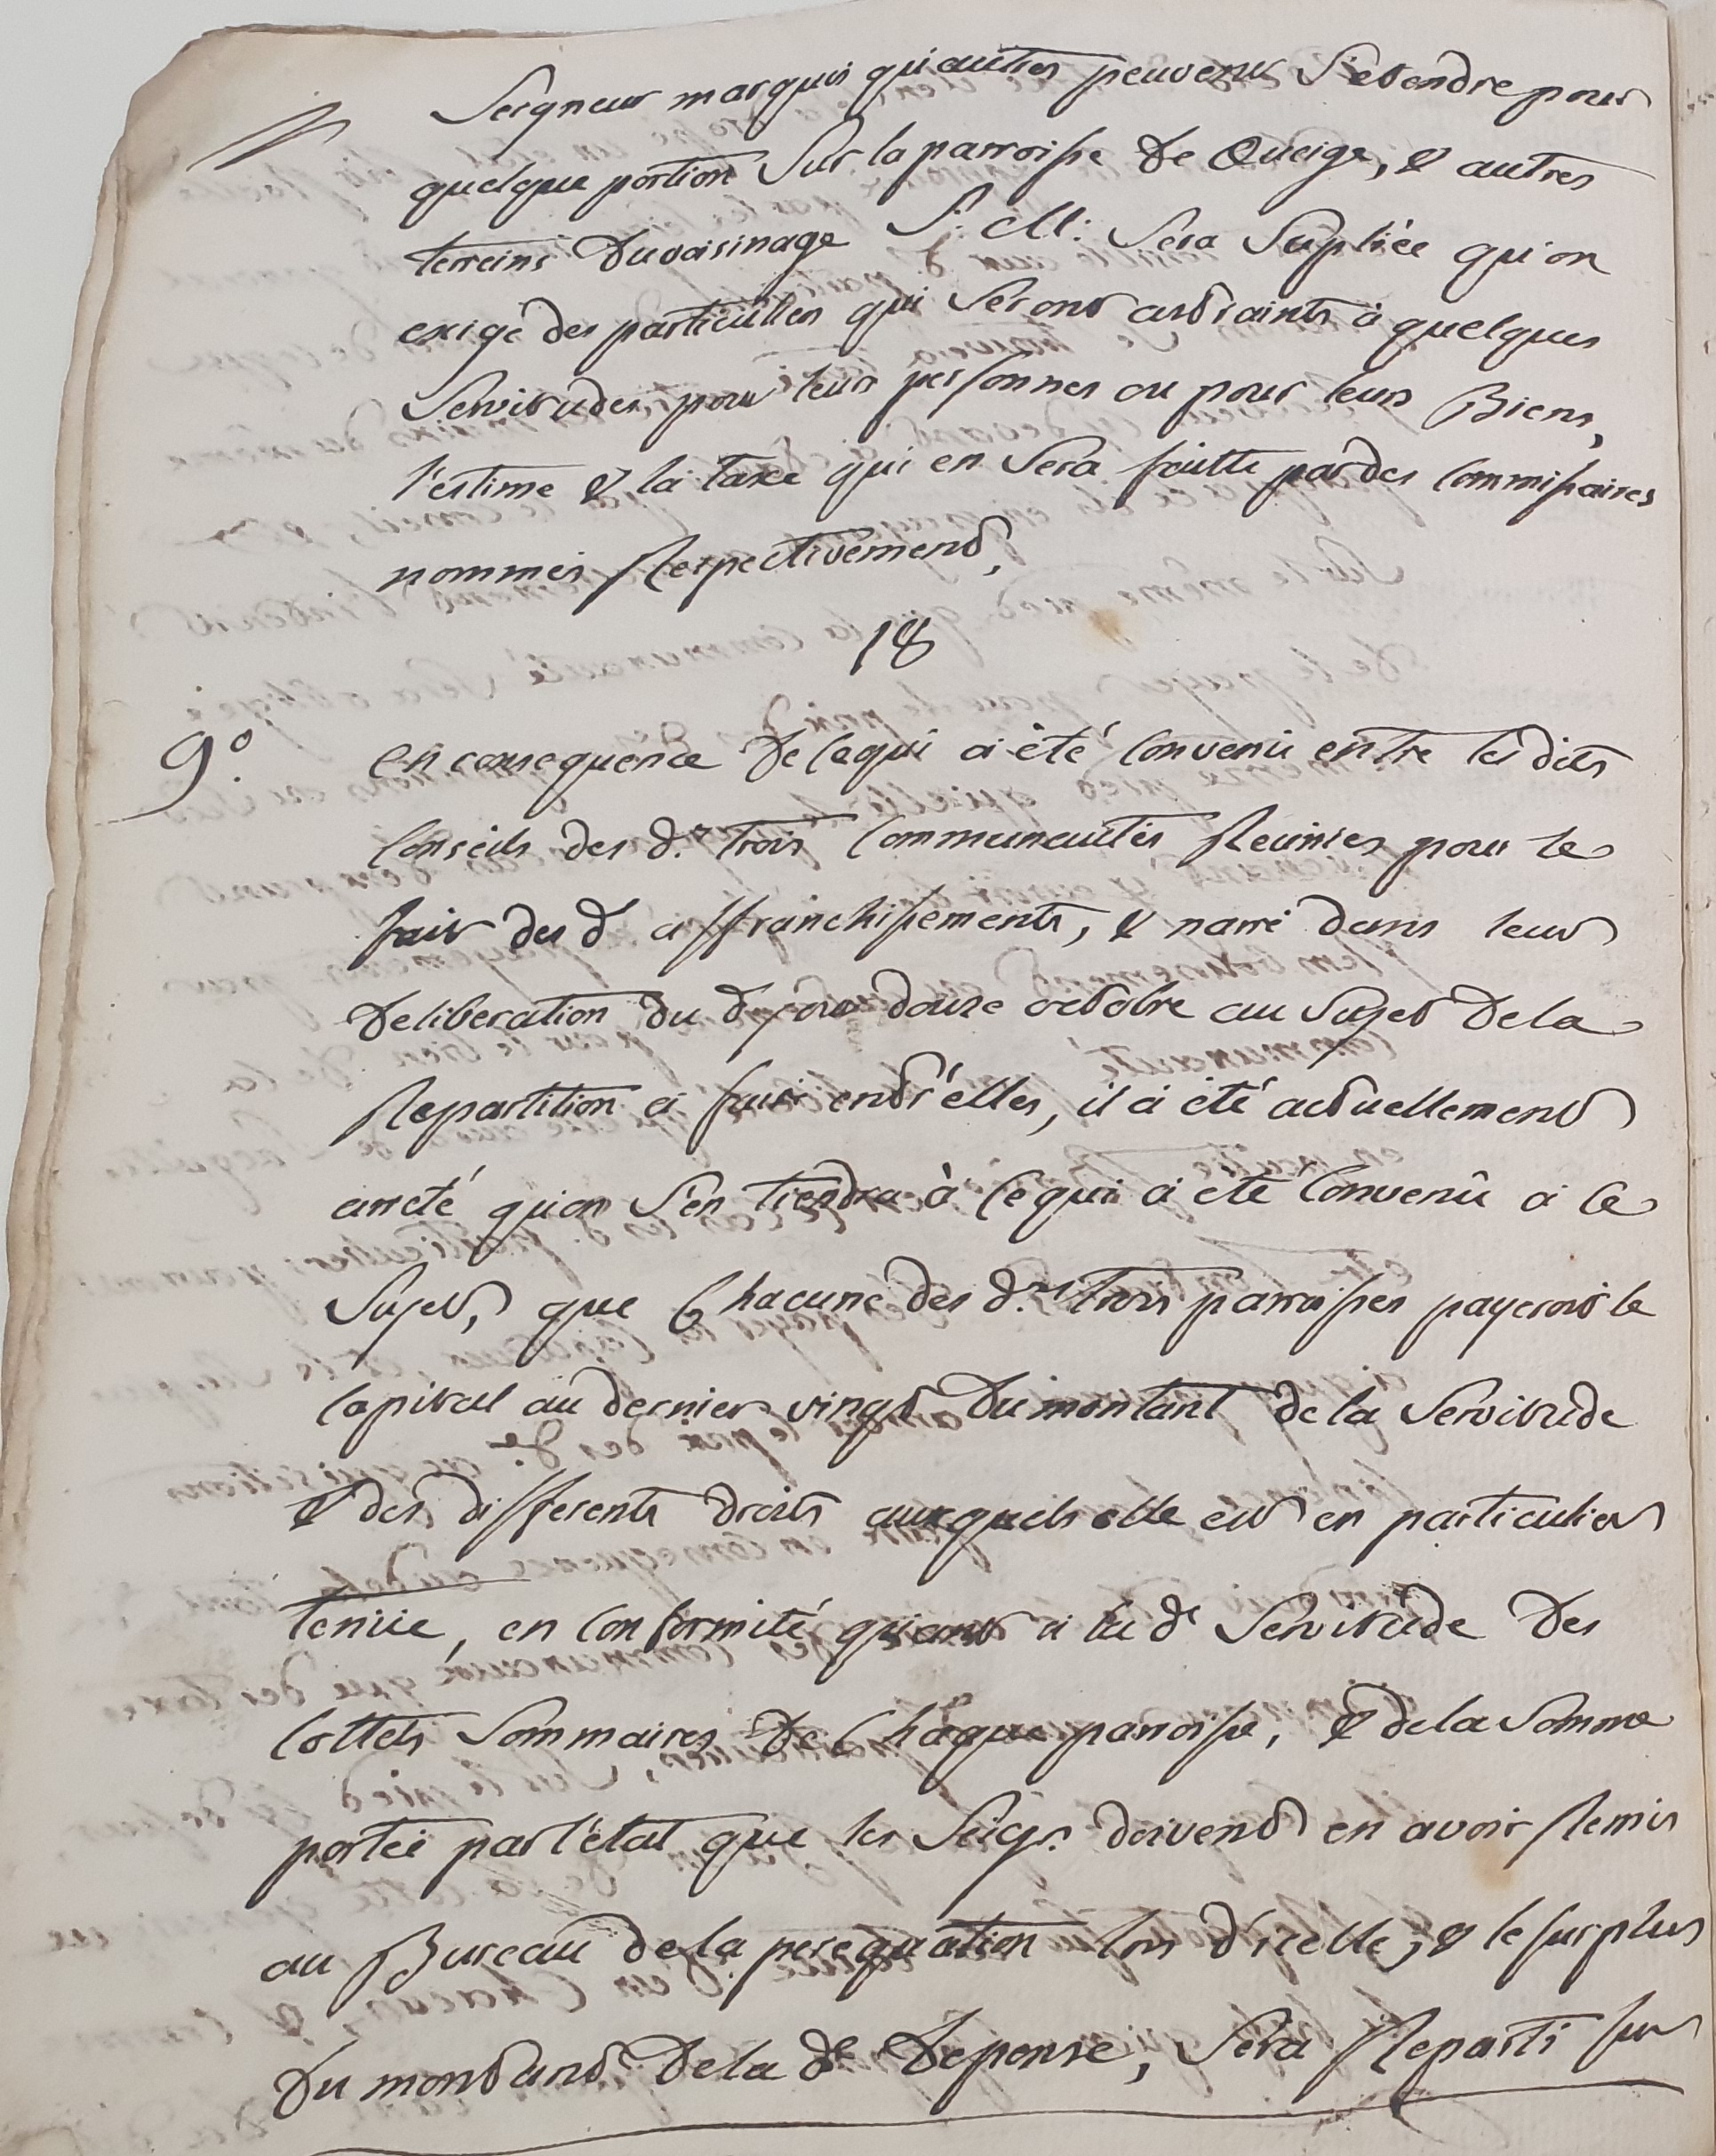 Seigneur marquis qu'autres peuvent S'etendre pour
quelque portion Sur la parroisse De Queige, & autres
terreins Du voisinage S. M. Sera Supliée qu'on
exige des particuliers qui Seront astraints à quelques
Servitudes pour leurs personnes ou pour leurs Biens,
l'estime & la taxe qui en Sera faitte par des Commissaires
nommés Respectivement,
18
9.° en consequence De ce qui a été Convenu entre les dits
Conseils des d.es trois Communautés Reunies pour le
fait des d affranchissements, & narré dans leur
Deliberation du d jour douze octobre au Sujet De la
Repartition a faire entr'elles, il a été actuellement
arreté qu'on S'en tiendra à Ce qui a eté Convenû a Ce
Sujet, que Chacune des d.es trois parroisses payeroit le
Capital au dernier vingt Du montant de la Servitude
& des differents droits auxquels elle est en particulier
tenüe, en Conformité quant a la de Servitude Des
Cottets Sommaires De Chaque parroisse, & de la Somme
portée par l'état que les Seigrs. doivent en avoir Remis
au Bureau de la perequation lors d'icelle, & le surplus
Du montant De la de Depense, Sera Reparti sur